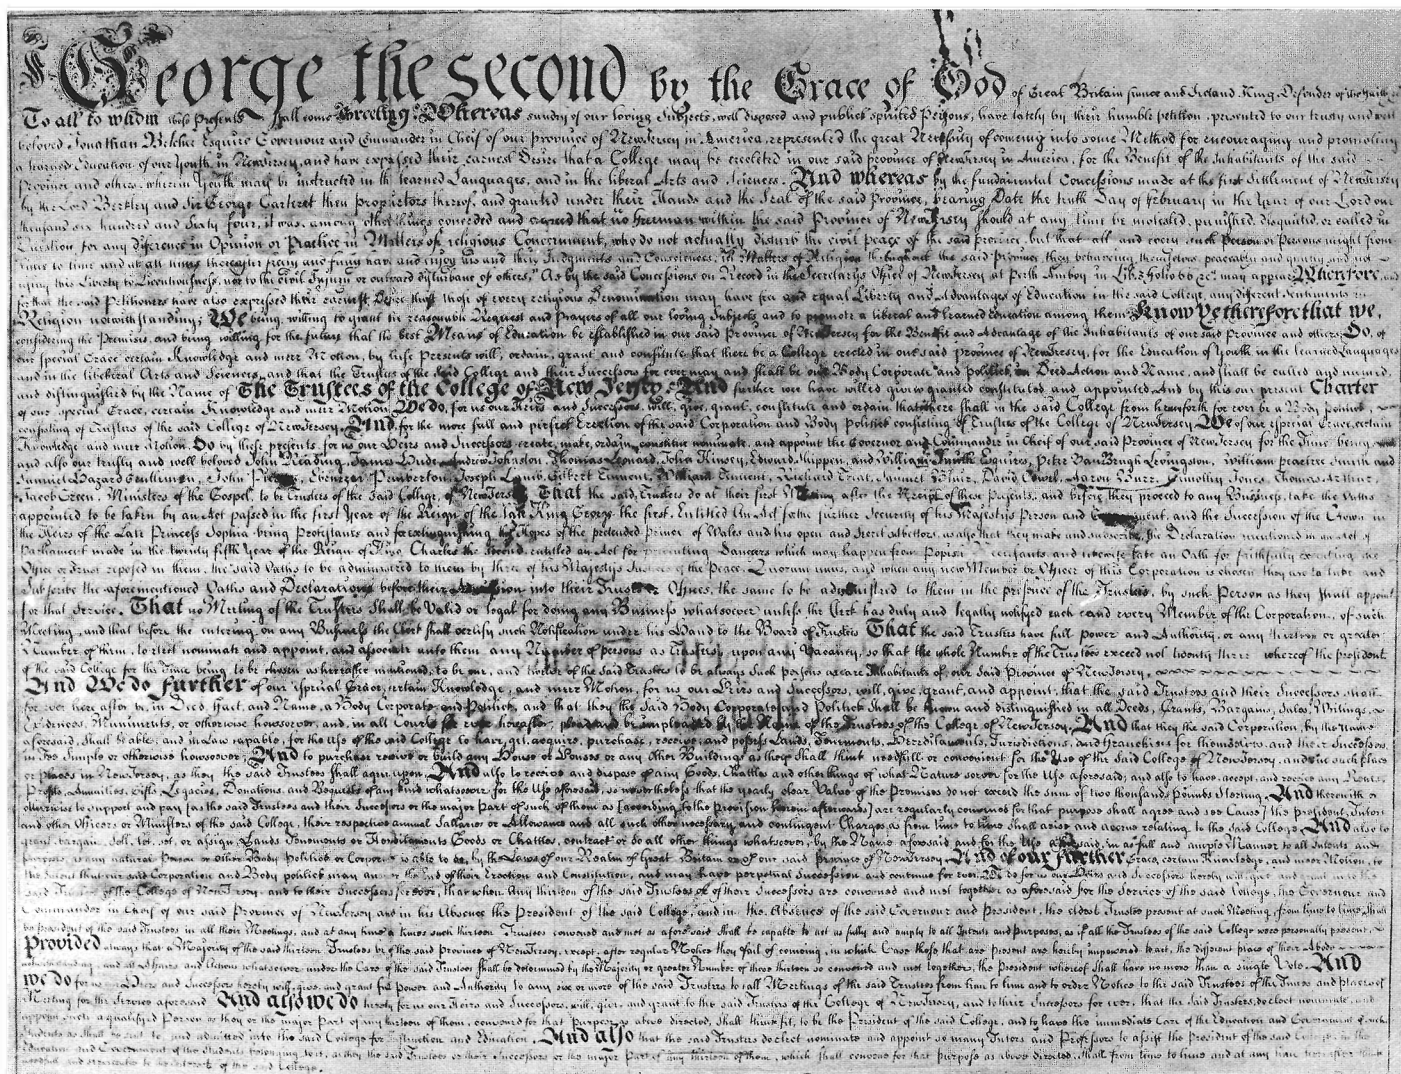 George the Second by the Grace of God of Great Britain France and Ireland King, Defender of the Faith &c
To all to whom these Presents shall come Greeting. Whereas sundry of our loving Subjects, well disposed and publick spirited Persons, have lately by their humble Petition, presented to our trusty and well
beloved Jonathan Belcher Esquire Governour and Commander in Cheif of our Province of New Jersey in America, represented the great Necessity of coming into some Method for encouraging and promoting
a learned Education of our Youth in New Jersey, and have expressed their earnest Desire that a College may be erected in our said province of New Jersey in America, for the Benefit of the Inhabitants of the said
Province and others, wherein Youth may be instructed in the learned Languages, and in the liberal Arts and Sciences. And whereas by the fundamental Concessions made at the first Settlement of New Jersey
by the Lord Berkley and Sir George Carteret then proprietors thereof, and granted under their Hands and the Seal of the said Province, bearing Date the tenth Day of February in the Year of our Lord one
thousand six hundred and sixty four, it was, among other things conceded and agreed that no freeman within the said Province of New Jersey should at any time be molested, punished, disquieted, or called in
Question for any difference in Opinion or Practice in Matters of religious Concernment, who do not actually disturb the civil peace of the said province, but that all and every such Person or Persons might from
time to time and at all times thereafter freely and fully have and enjoy his and their Judgments and Consciences, in Matters of Religion throughout the said Province, they behaving themselves peaceably and quietly and not
using this Liberty to Licentiousness, nor to the civil Injury or outward disturbance of others. As by the said Concessions on Record in the Secretarys Office of New Jersey at Perth Amboy in Lib: 3 folio 66 &c. may appear. Wherefore, and
for that the said Petitioners have also expressed their earnest Desire that those of every religious Denomination may have free and equal Liberty and Advantages of Education in the said College, any different Sentiments in
Religion notwithstanding; We being willing to grant the reasonable Request and Prayers of all our loving Subjects and to promote a liberal and learned Education among them Know ye therefore that we,
considering the Premises, and being willing for the future that the best Means of Education be established in our said Province of New Jersey for the Benefit and Advantage of the Inhabitants of our said Province and others, Do, of
our special Grace certain Knowledge and meer Motion, by these Presents will, ordain, grant and constitute that there be a College erected in our said province of New Jersey, for the Education of Youth in the learned Languages
and in the liberal Arts and Sciences, and that the Trustees of the said College and their Successors for ever may and shall be one Body Corporate and Politick, in Deed Action and Name, and shall be called and named,
and distinguished by the Name of The Trustees of the College of New Jersey: And further we have willed given granted constituted and appointed, And by this our present Charter
of our special Grace, certain Knowledge and meer Motion, We do, for us our Heirs and Successors, will, give, grant, constitute and ordain that there shall in the said College from henceforth for ever be a Body Politick
consisting of Trustees of the said College of New Jersey. And, for the more full and perfect Erection of the said Corporation and Body Politick consisting of Trustees of the College of New Jersey We of our special Grace, certain
Knowledge and meer Motion Do by these presents, for us our Heirs and Successors create, make, ordain, constitute nominate, and appoint the Governor and Commander in Cheif of our said Province of New Jersey for the Time being
and also our trusty and well beloved John Reading, James Hude Andrew Johnston, Thomas Leonard, John Kinsey, Edward Shippen, and William Smith Esquires, Peter Van Brugh Livingston, William Peartree Smith and
Samuel Hazard Gentlemen, John Pierson, Ebenezer Pemberton, Joseph Lamb, Gilbert Tennent, William Tennent, Richard Treat, Samuel Blair, David Cowel, Aaron Burr, Timothy Jones, Thomas Arthur,
Jacob Green, Ministers of the Gospel, to be Trustees of the said College of New Jersey. That the said Trustees do at their first Meeting after the Receipt of these Presents, and before they proceed to any Business, take the Oaths
appointed to be taken by an Act passed in the first Year of the Reign of the late King George the first, Entitled An Act for the further Security of his Majestys Person and Government, and the Succession of the Crown in
the Heirs of the Late Princess Sophia being Protestants and for extinguishing the Hopes of the pretended Prince of Wales and his open and secret Abettors, as also that they make and subscribe the Declaration mentioned in an Act of
Parliament made in the twenty fifth Year of the Reign of King Charles the second, entitled an Act for preventing Dangers which may happen from Popish Recusants and likewise take an Oath for faithfully executing the
Office or Trust reposed in them, the said Oaths to be administered to them by three of his Majestys Justices of the Peace, Quorum unus, and when any new Member or Officer of this Corporation is chosen they are to take and
subscribe the aforementioned Oaths and Declarations before their Admission into their Trusts or Offices, the same to be administred to them in the presence of the Trustees, by such Person as they shall appoint
for that Service. That no Meeting of the Trustees shall be valid or legal for doing any Business whatsoever unless the Clerk has duly and legally notifyed each and every Member of the Corporation, of such
Meeting, and that before the entering on any Business the Clerk shall certify such Notification under his Hand to the Board of Trustees That the said Trustees have full power and Authority, or any thirteen or greater
Number of them, to elect nominate and appoint, and associate unto them any Number of persons as Trustees upon any Vacancy, so that the whole Number of the Trustees exceed not twenty three whereof the president
of the said College for the Time being, to be chosen as hereafter mentioned, to be one, and twelve of the said Trustees to be always such persons as are Inhabitants of our said Province of New Jersey.
And We do further of our especial Grace, certain Knowledge, and meer Motion, for us our Heirs and Successors, will, give, grant, and appoint, that the said Trustees and their Successors shall
for ever hereafter be, in Deed, Fact, and Name, a Body Corporate and Politick, and that they the said Body Corporate and Politick shall be known and distinguished in all Deeds, Grants, Bargains, Sales, Writings,
Evidences, Muniments, or otherwise howsoever, and, in all Courts for ever hereafter, plead and be impleaded by the Name of the Trustees of the College of New Jersey. And that they the said Corporation, by the Name
aforesaid, shall be able, and in Law capable, for the Use of the said College to have, get, acquire, purchase, receive, and possess Lands, Tenements, Hereditaments, Jurisdictions, and Franchises for themselves and their Successors,
in Fee Simple or otherwise howsoever; And to purchase receive or build any House or Houses or any other Buildings as they shall think needfull or convenient for the Use of the said College of New Jersey, and in such place
or places in New Jersey, as they the said Trustees shall agree upon, And also to receive and dispose of any Goods, Chattles and other things of what Nature soever for the Use aforesaid; and also to have, accept, and receive any Rents,
Profits, Annuities, Gifts, Legacies, Donations, and Bequests of any kind whatsoever for the Use aforesaid, so nevertheless that the yearly clear Value of the Premises do not exceed the sum of two thousands pounds sterling. And therewith or
otherwise to support and pay [as the said Trustees and their Successors or the major Part of such of them as [according to the provision herein afterwards] are regularly convened for that purpose shall agree and see Cause] the president, Tutors
and other Officers or Ministers of the said College, their respective annual Sallaries or Allowance and all such other necessary and contingent Charges as from time to time shall arise and accrue relating to the said College. And also to
grant, bargain, sell, let, set, or assign Lands Tenements or Hereditaments Goods or Chattles, contract or do all other things whatsoever, by the Name aforesaid and for the Use aforesaid, in as full and ample Manner to all Intents and
Purposes, as any natural Person or other Body Politick or Corporate is able to do, by the Laws of our Realm of Great Britain or of our said province of New Jersey. And of our further Grace, certain Knowledge, and meer Motion, to
the Intent that our said Corporation and Body politick may answer the End of their Erection and Constitution, and may have perpetual Succession and continue for ever. We do for us our Heirs and Successors hereby will give and grant unto the
said Trustees of the College of New Jersey, and to their Successors forever, that when any thirteen of the said Trustees or of their Successors are convened and met together as aforesaid for the Service of the said College, the Governour and
Commander in Cheif of our said Province of New Jersey and in his Absence the President of the said College, and in the Absence of the said Governour and President, the eldest Trustee present at such Meeting, from time to time, shall
be president of the said Trustees in all their Meetings, and at any time or times such thirteen Trustees convened and met as aforesaid shall be capable to act as fully and amply to all Intents and purposes, as if all the Trustees of the said College were personally present,
Provided always that a Majority of the said thirteen Trustees be of the said Province of New Jersey, except, after regular Notice they fail of coming, in which Case those that are present are hereby impowered to act, the different place of their Abode
notwithstanding, and all Affairs and Actions whatsoever under the Care of the said Trustees shall be determined by the Majority or greater Number of those thirteen so convened and met together, the President whereof shall have no more than a single Vote. And
we do for us our Heirs and Successors hereby will, give, and grant full Power and Authority to any six or more of the said Trustees to call Meetings of the said Trustees from time to time and to order Notice to the said Trustees of the Times and places of
Meeting for the Service aforesaid. And also we do hereby for us our Heirs and Successors, will, give, and grant to the said Trustees of the College of New Jersey, and to their Successors for ever, that the said Trustees, do elect nominate, and
appoint such a qualifyed Person as they or the major Part of any thirteen of them, convened for that purpose, as above directed, shall think fit, to be the President of the said College, and to have the immediate Care of the Education and Government of such
Students as shall be sent to, and admitted into the said College for Instruction and Education. And also that the said Trustees do elect nominate and appoint so many Tutors and Professors to assist the President of the said College, in the
Education and Government of the Students belonging to it, as they the said Trustees or their Successors or the major Part of any thirteen of them, which shall convene for that purpose as above directed, shall from time to time and at any time hereafter think
needful and serviceable to the Interests of the said College.